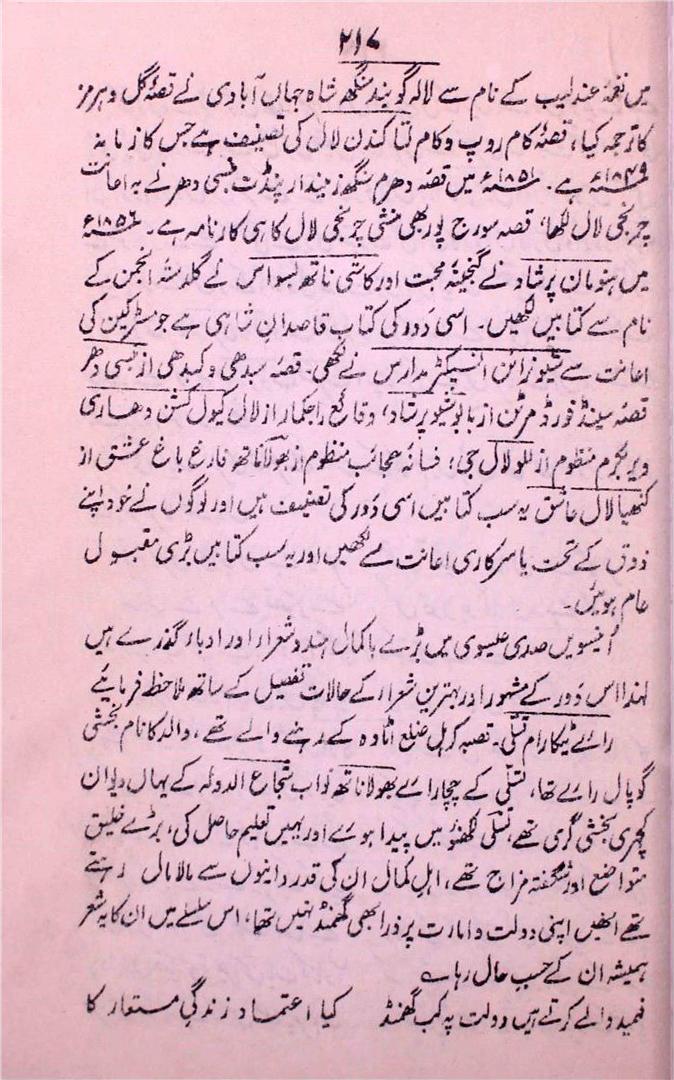 ۲۱۷
میں نغمۂ عندلیب کے نام سے لالہ گوبند سنگھ شاہ جہاں آبادی نے قصۂ گل و ہرمز
کا ترجمہ کیا، قصۂ کام روپ و کام لتا کندن لال کی تصنیف ہے جس کا زمانہ
۱۸۴۹ء ہے۔ ۱۸۵۱ء میں قصہ دھرم سنگھ زمیندار پنڈت بنسی دھر نے بہ اعانت
چرنجی لال لکھا، قصہ سورج پور بھی منشی چرنجی لال کا ہی کارنامہ ہے۔ ۱۸۵۶ء
میں ہنومان پرشاد نے گنجینۂ محبت اور کاشی ناتھ بسواس نے گلدستۂ انجمن کے
نام سے کتابیں لکھیں۔ اسی دَور کی کتاب قاصدانِ شاہی ہے جو مسٹر کین کی
اعانت سے شیو نرائن انسپکٹر مدارس نے لکھی۔ قصۂ سبدھی و کبدھی از بنسی دھر
قصہ سینڈ فورڈ مرٹن از بابو شیو پرشاد، وقائع راجکمار از لال کیول کشن دھاری
ویر بکرم منظوم از للو لال جی، فسانۂ عجائب منظوم از بھولا ناتھ فارغ باغِ عشق از
کنھیا لال عاشق یہ سب کتابیں اسی دَور کی تصنیف ہیں اور لوگوں نے خود اپنے
ذوق کے تحت یا سرکاری اعانت سے لکھیں اور یہ سب کتابیں بڑی مقبول
عام ہوئیں۔
اُنیسویں صدی عیسوی میں بڑے باکمال ہندو شعرار اور ادبار گذرے ہیں
لہٰذا اس دَور کے مشہور اور بہترین شعرار کے حالات تفصیل کے ساتھ ملاحظہ فرمایئے
رائے ٹیکا رام تسلّی۔ قصبہ کرہل ضلع اٹاوہ کے رہنے والے تھے، والد کا نام بخشی
گوپال رائے تھا، تسلّی کے چچا رائے بھولا ناتھ نواب شجاع الدولہ کے یہاں دیوان
کچہری بخشی گری تھے، تسلّی لکھنؤ میں پیدا ہوئے اور یہیں تعلیم حاصل کی، بڑے خلیق
متواضع اور شگفتہ مزاج تھے، اہلِ کمال ان کی قدر دانیوں سے مالامال رہتے
تھے انھیں اپنی دولت و امارت پر ذرا بھی گھمنڈ نہیں تھا، اس سلسلے میں ان کا یہ شعر
ہمیشہ ان کے حسب حال رہا ؎
فہمید والے کرتے ہیں دولت پہ کب گھمنڈ کیا اعتماد زندگیِ مستعار کا